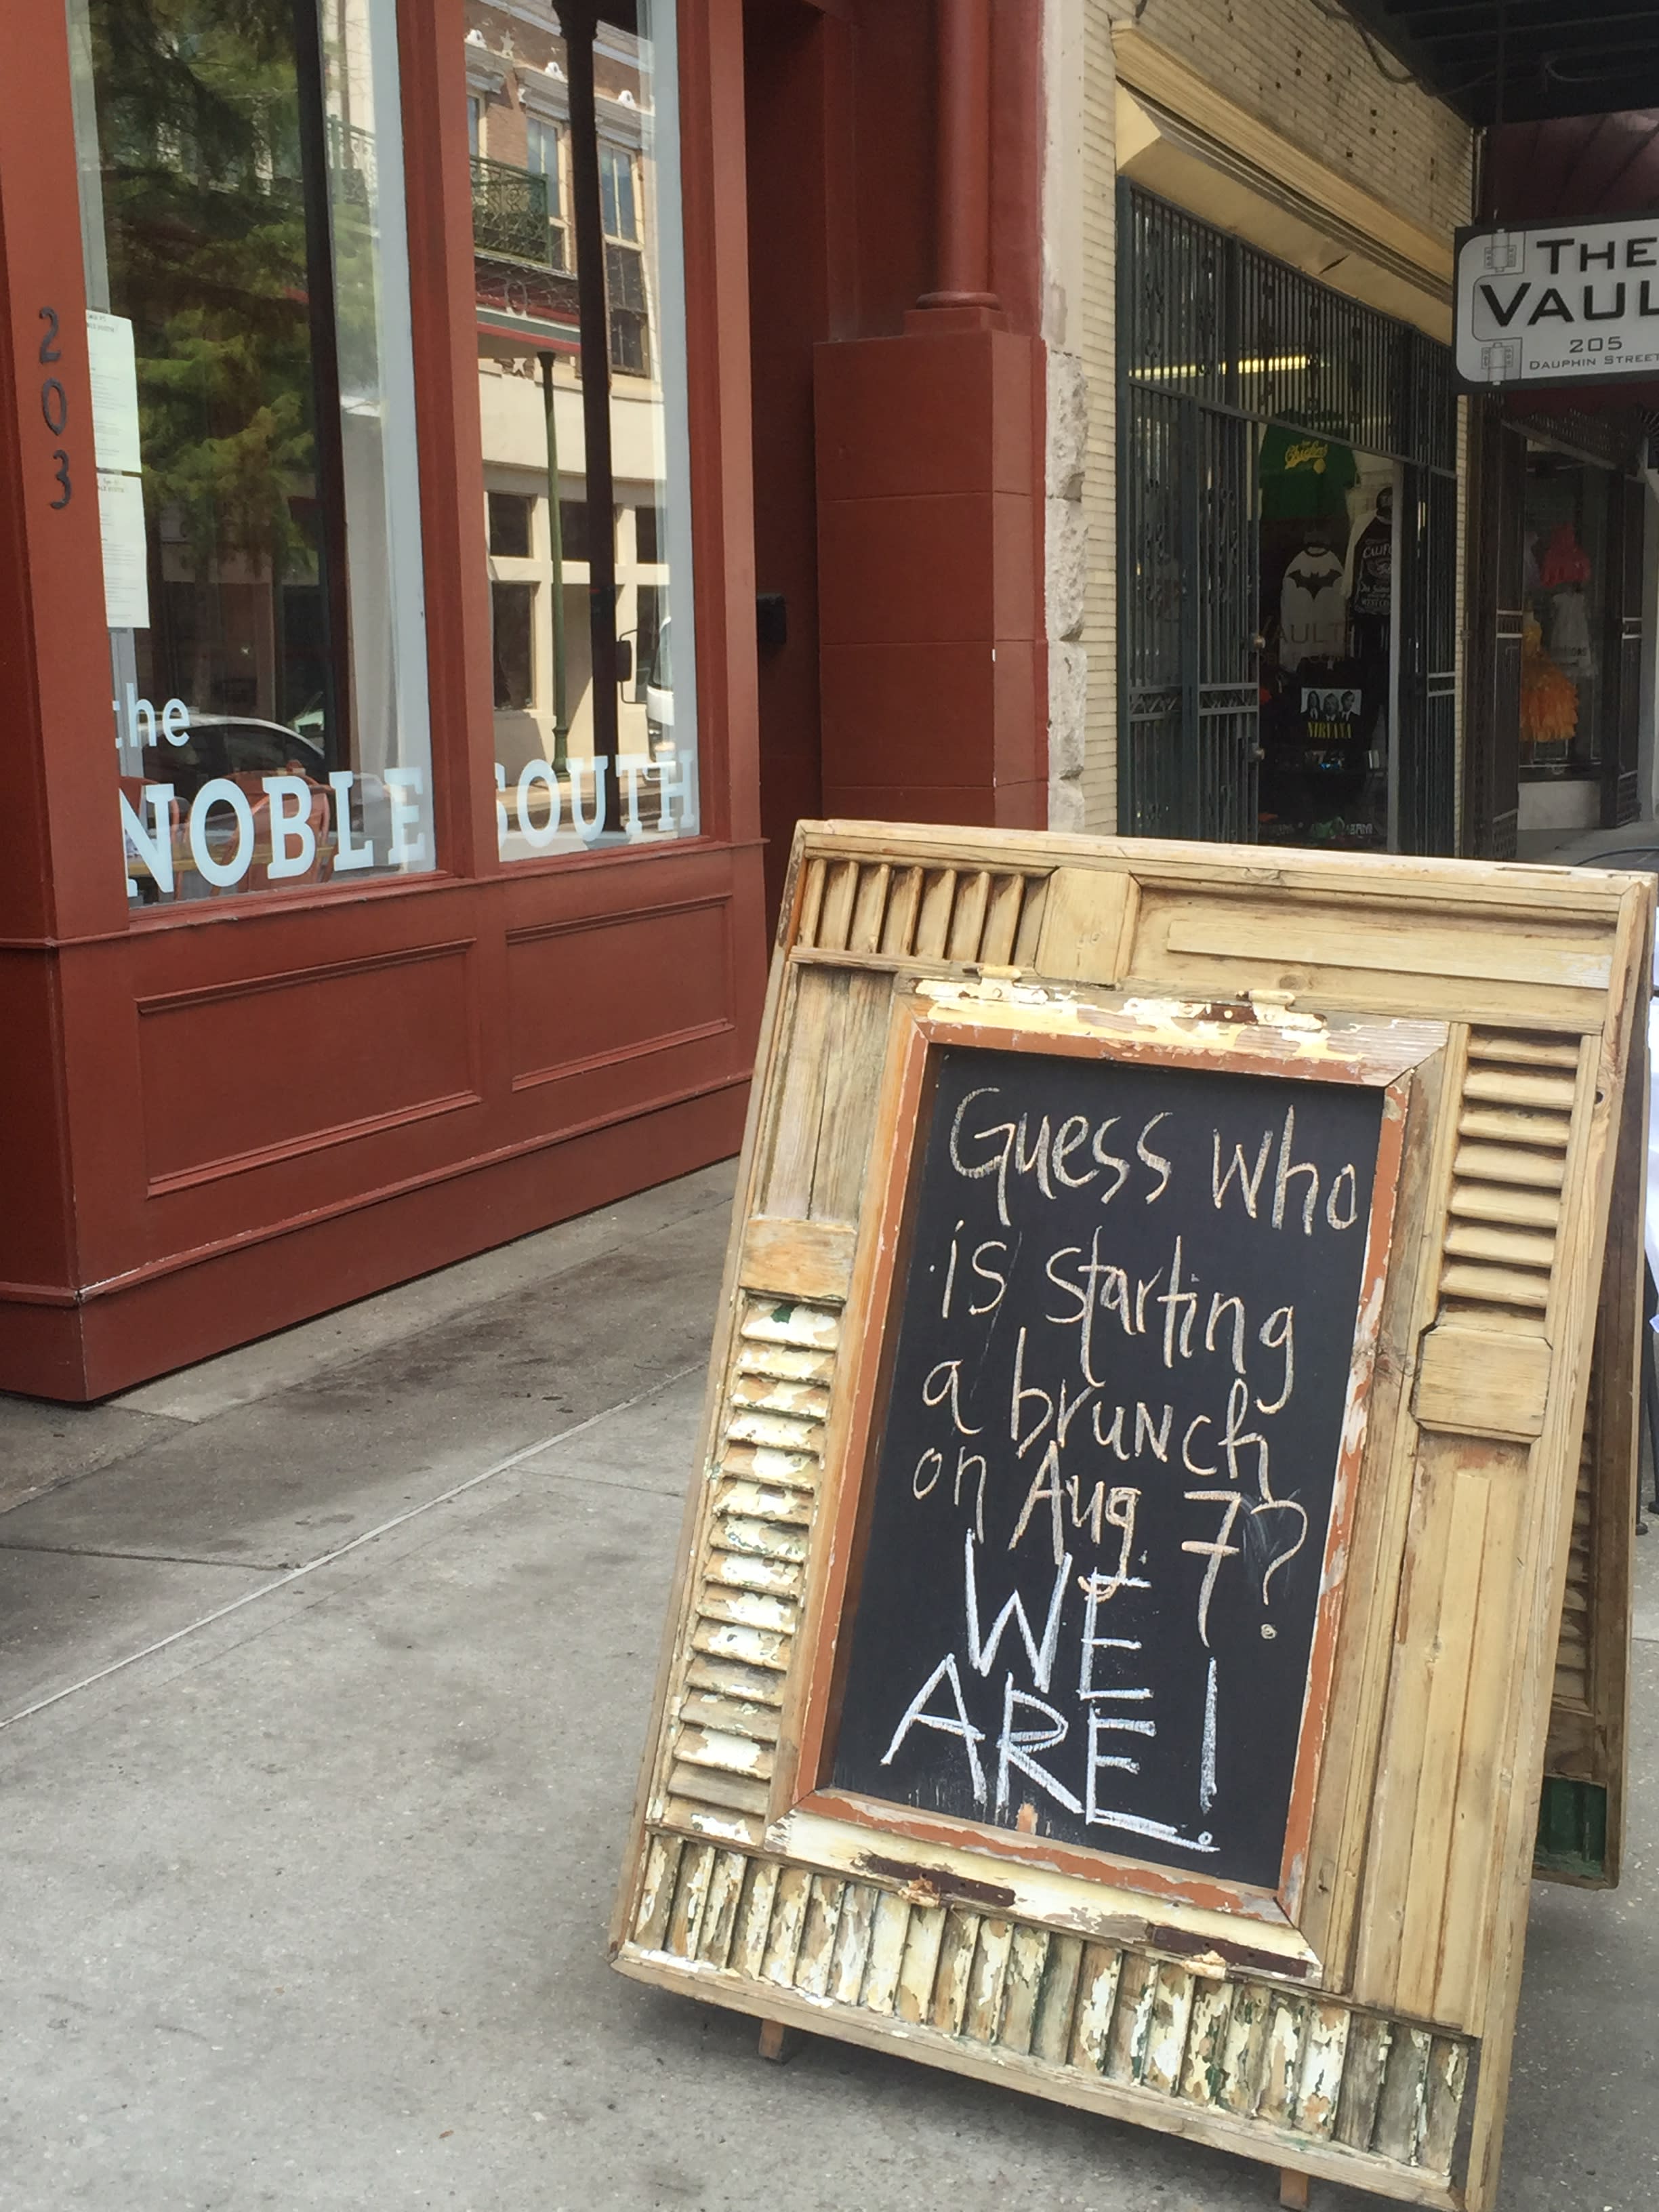 203
the
NOBLE SOUTH
THE
VAUL
205
DAUPHIN STREET
NIRVANA
Guess who
is starting
a brunch
on Aug 7?
WE
ARE!